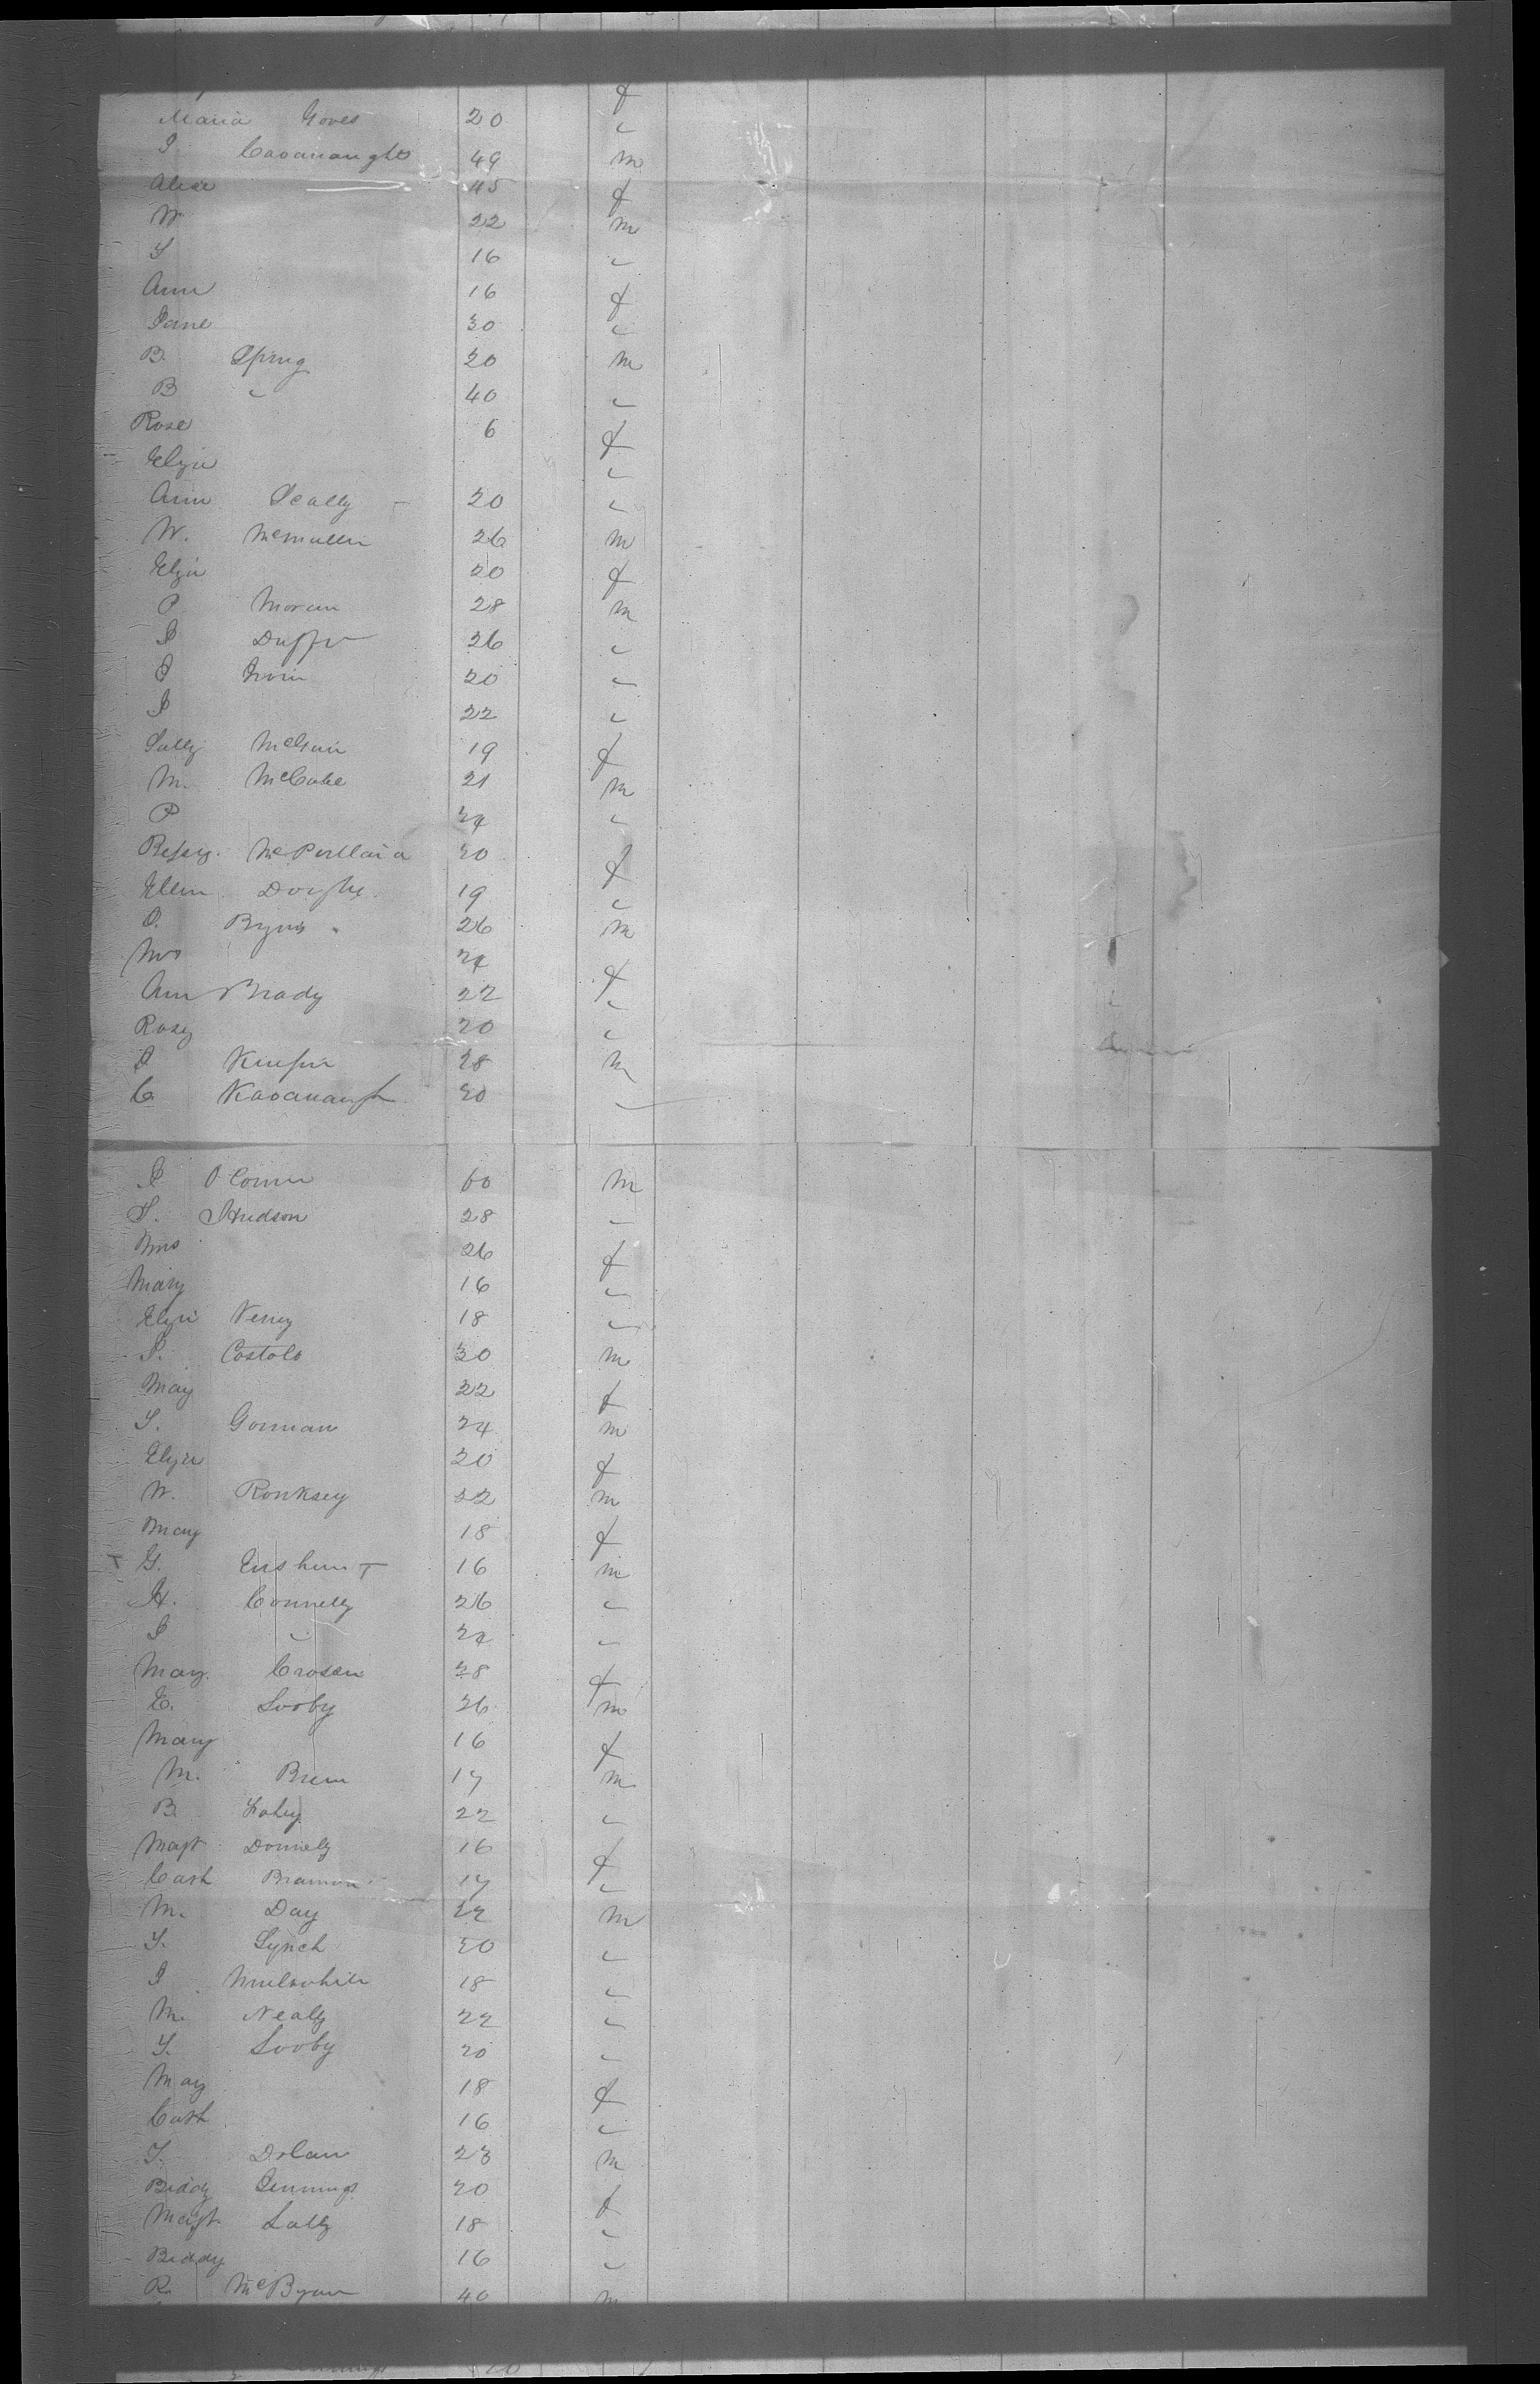 f
Maria Goves 20 "
J Cavanaught 49 m
Alice 45 f
W 22 m
T 16 "
Ann 16 f
Jane 30 "
B. Spring 20 m
B " 40 "
Rose 6 f
Eliza "
Ann Scally 20 "
W. McMullin 26 m
Eliza 20 f
P Moran 28 m
J Duffy 26 "
J Irvin 20 "
J 22 "
Sally McGuir 19 f
M. McCabe 21 m
P 24 "
Betsey McPortland 20 f
Ellen 19 "
O. Byrns 26 m
Mrs 24 f
Ann Brady 22 "
Rosy 20 "
J 28 m
C Kavanaugh 30 "
J O Conner 60 m
T. Hudson 28 "
Mrs 26 f
Mary 16 "
Eliza 18 "
P. Costolo 30 m
Mary 22 f
T. Gorman 24 m
Eliza 20 f
W. Ronksey 22 m
Mary 18 f
G. 16 m
H. Connelly 26 "
J " 24 "
Mary Crosan 28 f
E. Looby 26 m
Mary 16 f
M. 17 m
B. Fahey 22 "
Magt Donnelly 16 f
Cath 17 "
M. Day 22 m
T. Lynch 20 "
J 18 "
M. Nealy 22 "
T. Looby 20 "
Mary 18 f
Cath 16 "
T. Dolan 23 m
Biddy Jennings 20 f
Magt Lally 18 "
Biddy 16 "
R. McBynn 40 m